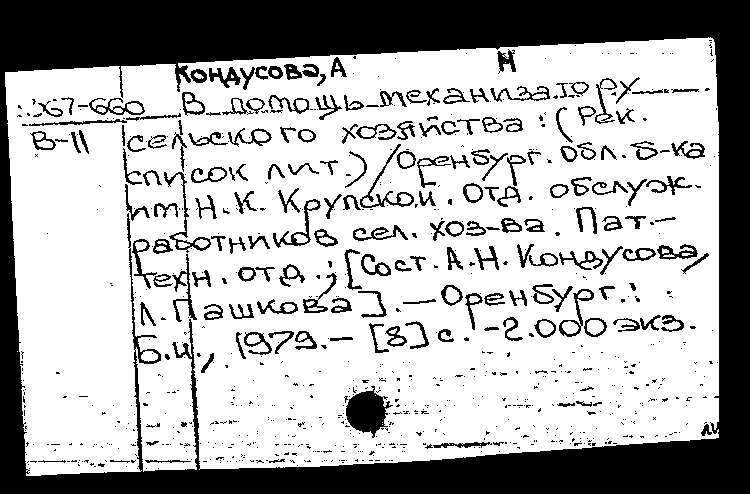 Кондусова, А Н
Э67-660 В помощь механизатору
В-11 сельского хозяйства : (Рек.
список лит.) / Оренбург. обл. б-ка
им. Н. К. Крупской. Отд. обслуж.
работников сел. хоз-ва. Пат.-
техн. отд. ; [Сост. А. Н. Кондусова,
Л. Пашкова]. — Оренбург. :
Б. и., 1979. — [8] с. - 2.000 экз.